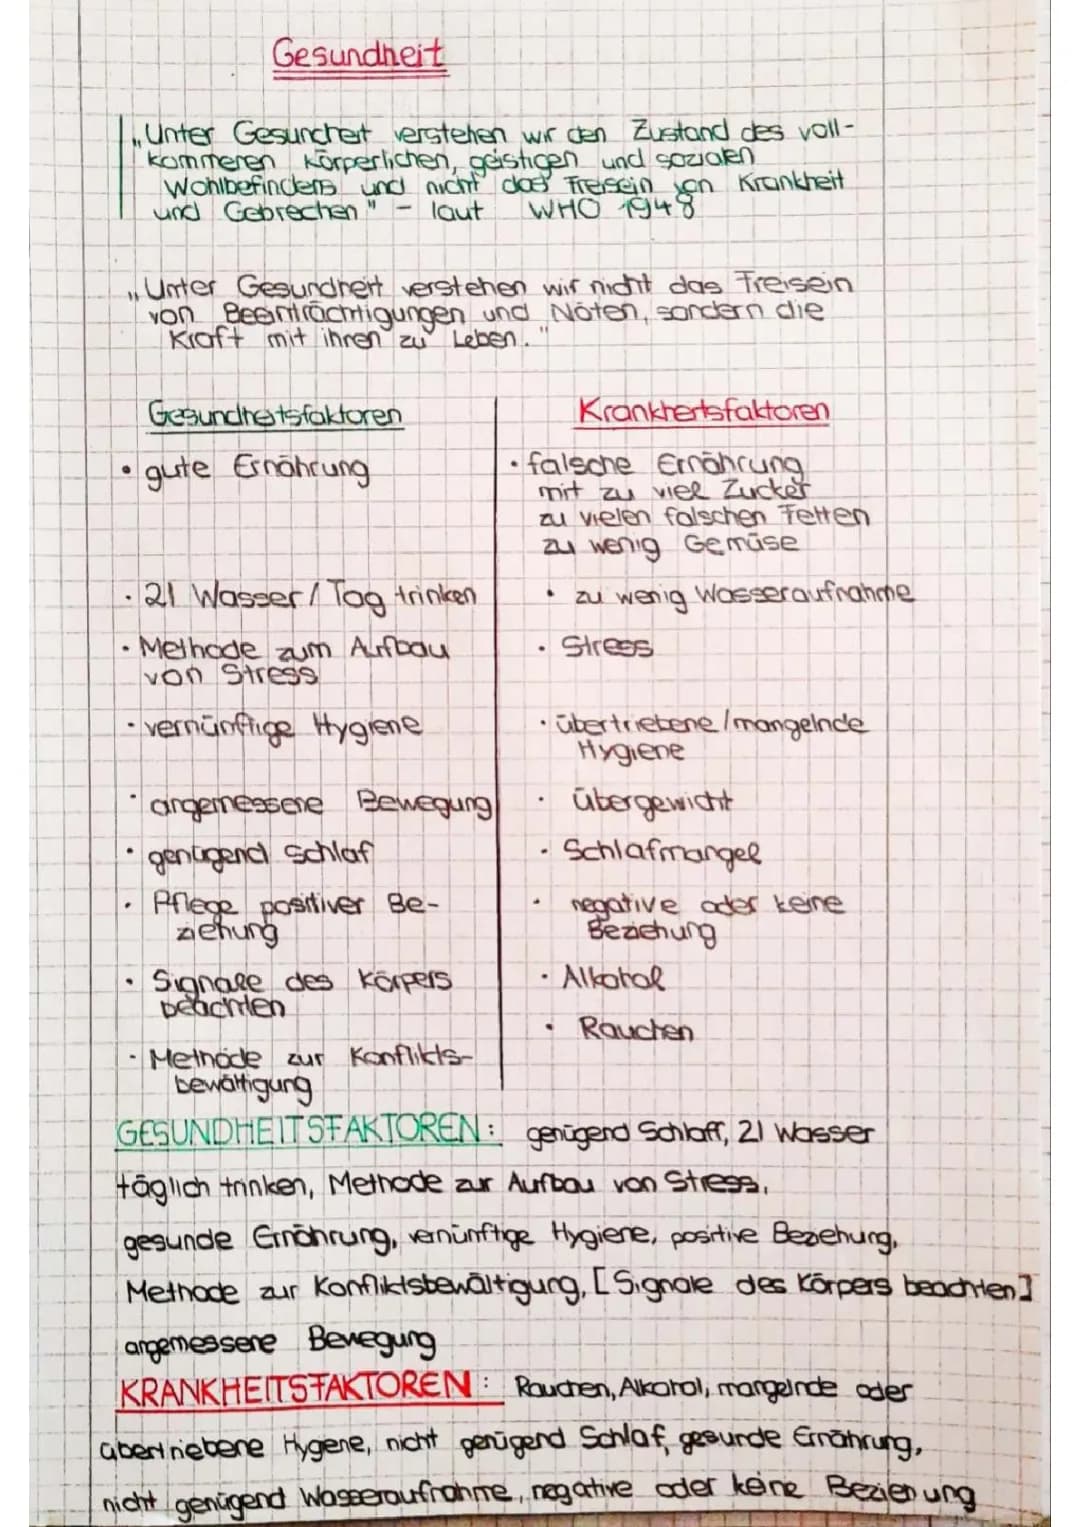 Gesundheit
„Unter Gesundheit verstehen wir den Zustand des voll-
kommenen körperlichen, geistigen und sozialen
Wohlbefindens und nicht das Freisein von Krankheit
und Gebrechen" - laut WHO 1948
„Unter Gesundheit verstehen wir nicht das Freisein
von Beeinträchtigungen und Nöten, sondern die
Kraft mit ihnen zu Leben."
Gesundheitsfaktoren
• gute Ernährung
• 2l Wasser / Tag trinken
• Methode zum Aufbau
von Stress
• vernünftige Hygiene
• angemessene Bewegung
• genügend Schlaf
• Pflege positiver Be-
ziehung
• Signale des Körpers
beachten
• Methode zur Konflikts-
bewältigung
Krankheitsfaktoren
• falsche Ernährung
mit zu viel Zucker
zu vielen falschen Fetten
zu wenig Gemüse
• zu wenig Wasseraufnahme
• Stress
• übertriebene / mangelnde
Hygiene
• Übergewicht
• Schlafmangel
• negative oder keine
Beziehung
• Alkohol
• Rauchen
GESUNDHEITSFAKTOREN: genügend Schlaff, 2l Wasser
täglich trinken, Methode zur Aufbau von Stress,
gesunde Ernährung, vernünftige Hygiene, positive Beziehung,
Methode zur Konfliktsbewältigung, [Signale des Körpers beachten]
angemessene Bewegung
KRANKHEITSFAKTOREN: Rauchen, Alkohol, mangelnde oder
übertriebene Hygene, nicht genügend Schlaf, gesunde Ernährung,
nicht genügend Wasseraufnahme, negative oder keine Beziehung